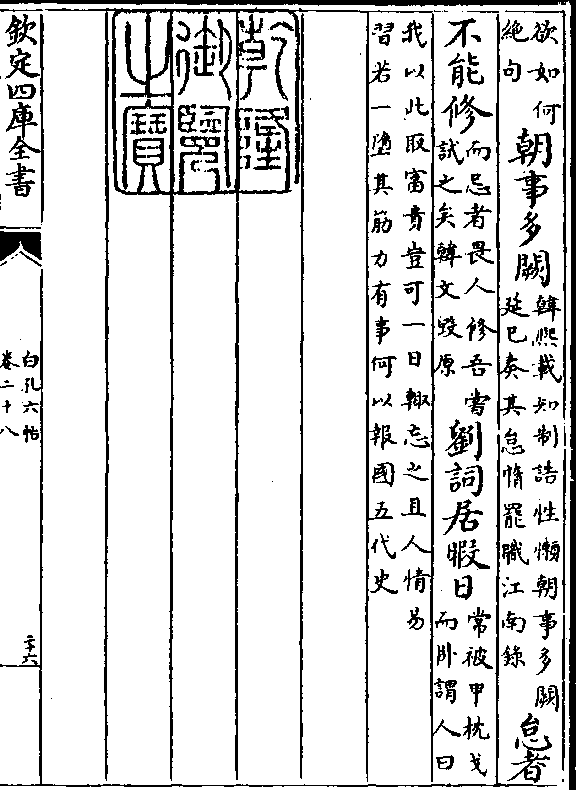 欲如何
絶句
朝事多闕
韓熙載知制誥性懶朝事多闕
延巳奏其怠惰罷職江南錄
怠者
不能修
而忌者畏人修吾嘗
試之矣韓文毀原
劉詞居暇日
常被甲枕戈
而卧謂人曰
我以此取富貴豈可一日輙忘之且人情易
習若一墮其筋力有事何以報國五代史
乾隆
御覽
之寶
欽定四庫全書
白孔六帖
卷二十八
二十六